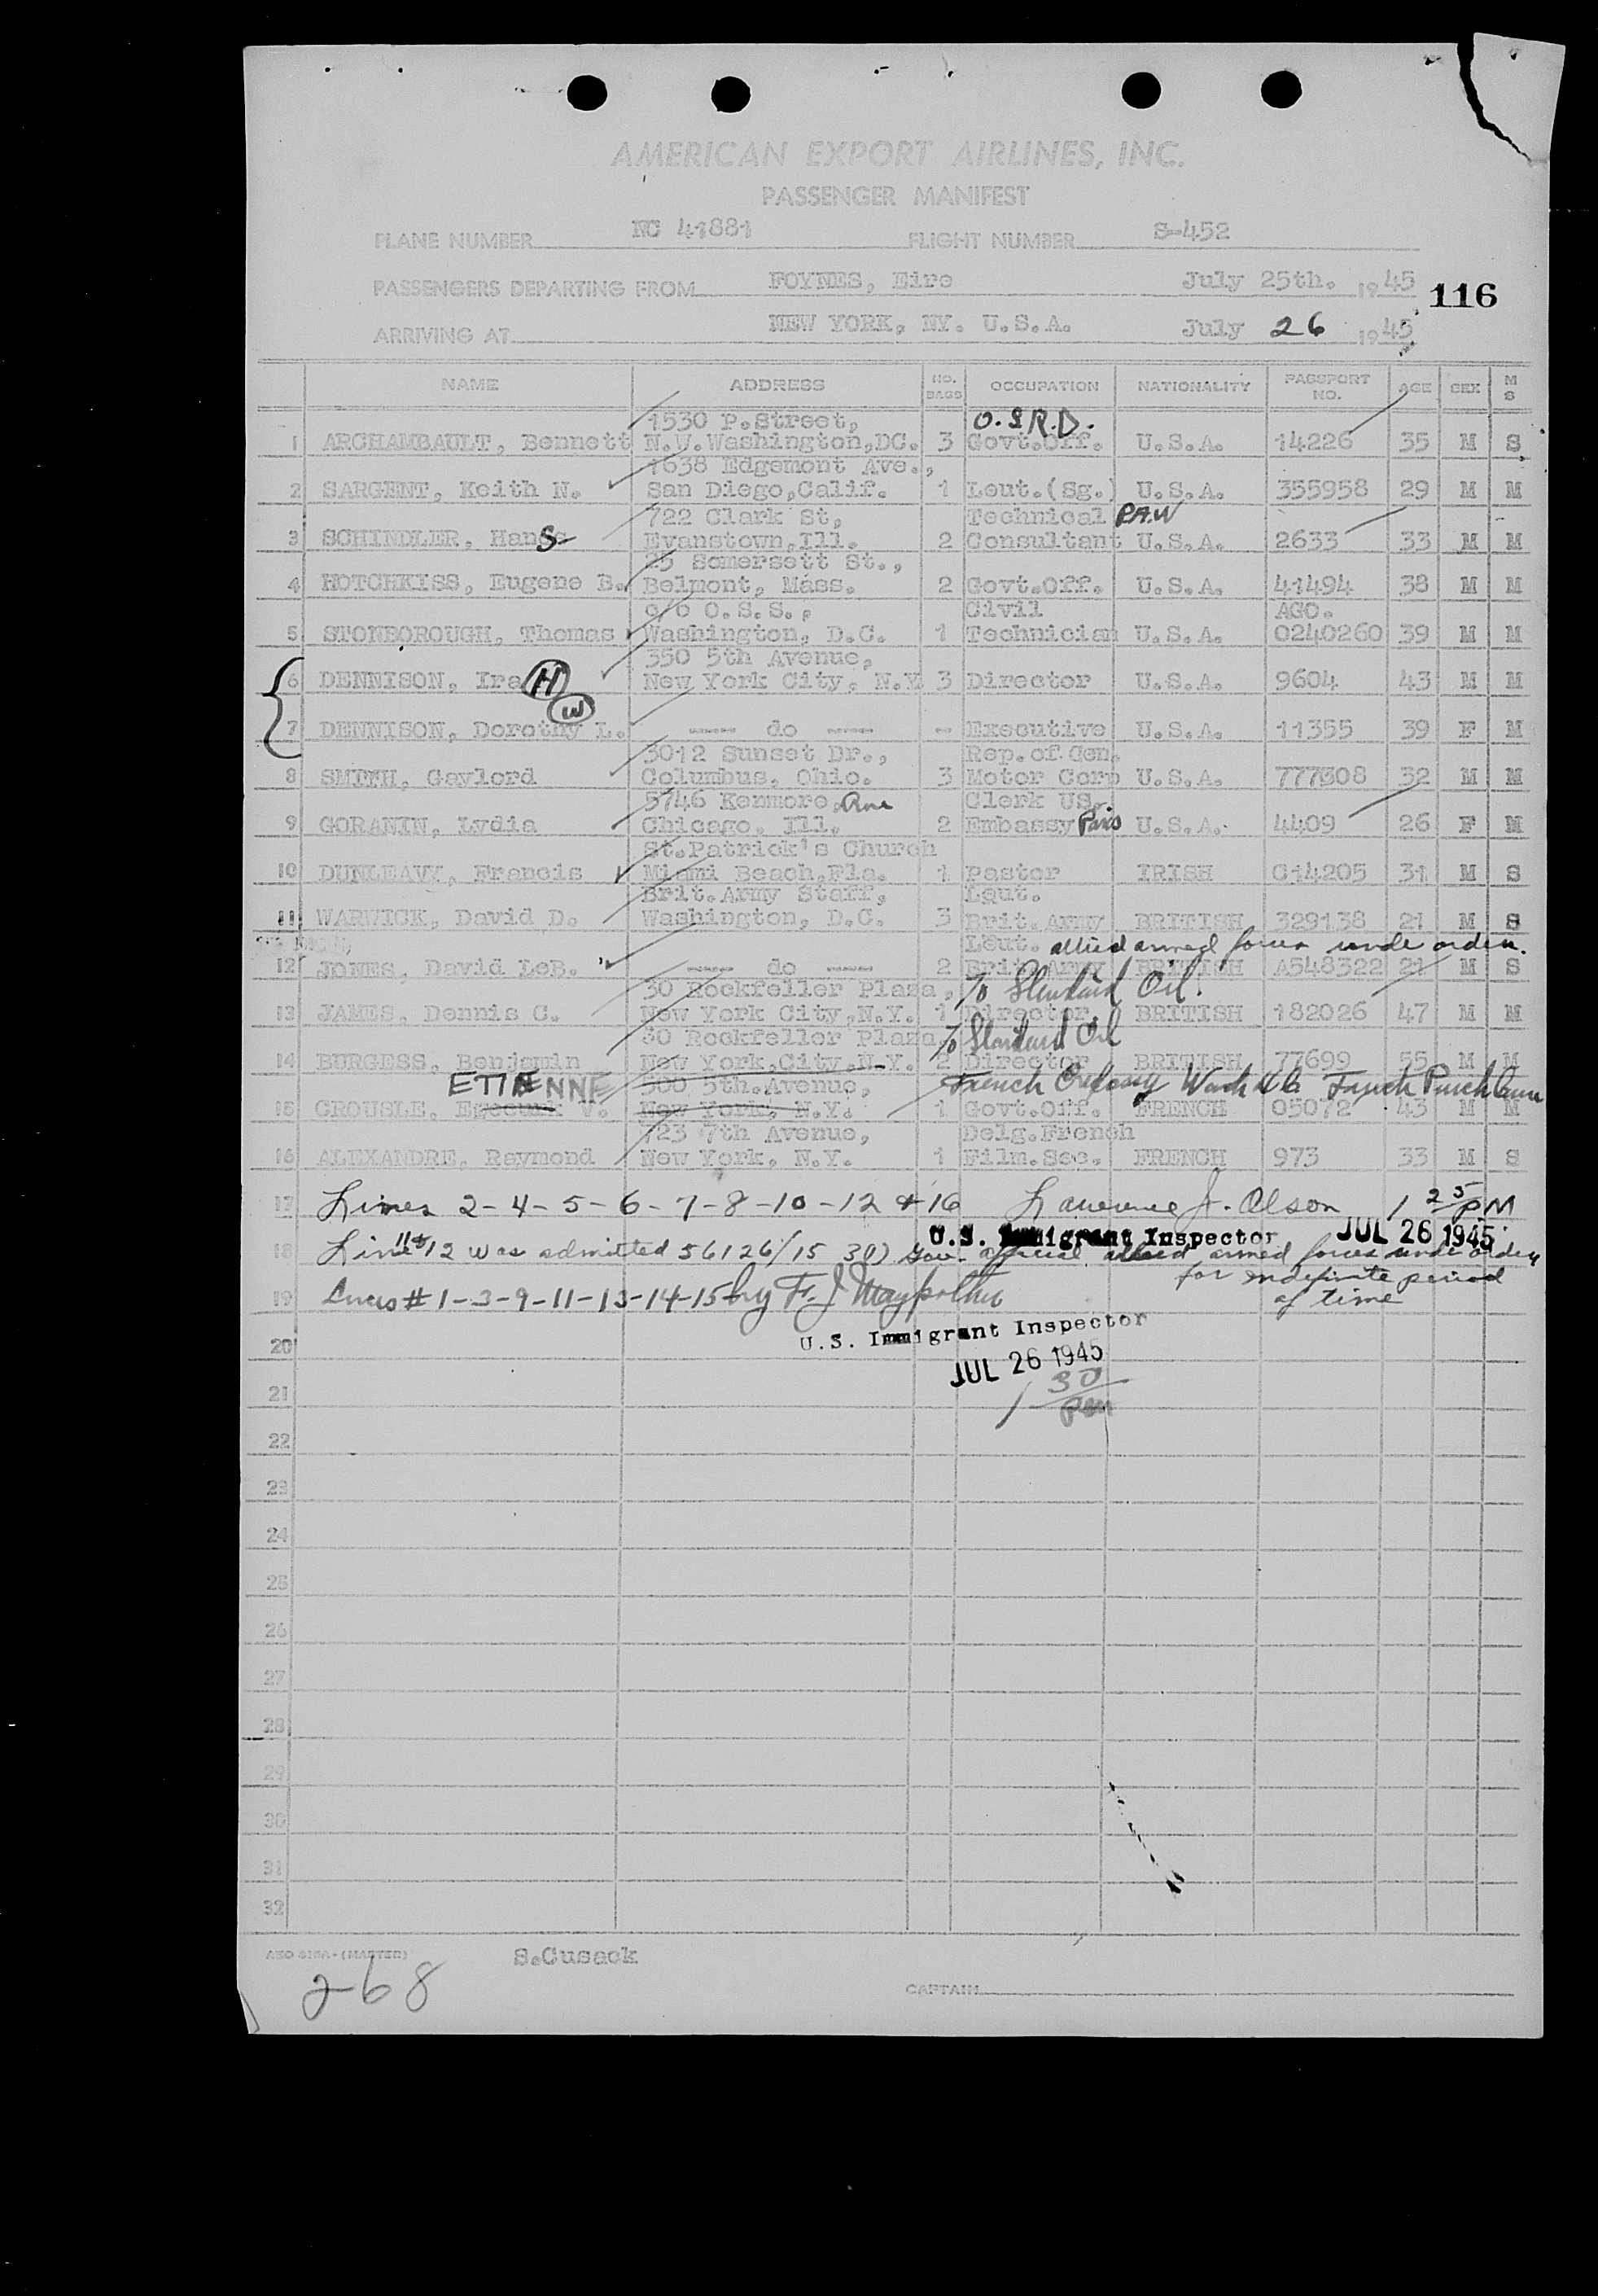 AMERICAN EXPORT AIRLINES, INC.
PASSENGER MANIFEST
PLANE NUMBER NC 41881 FLIGHT NUMBER S-452
PASSENGERS DEPARTING FROM FOYNES, Eire July 25th. 1945
116
ARRIVING AT NEW YORK, NY. U.S.A. July 26 1945
NAME ADDRESS NO. BAGS OCCUPATION NATIONALITY PASSPORT NO. AGE SEX M S
1530 P.Street, O.S.R.D.
1 ARCHAMBAULT, Bennett N.W.Washington,DC. 3 Govt.Off. U.S.A. 14226 35 M S
1638 Edgemont Ave.,
2 SARGENT, Keith N. San Diego,Calif. 1 Leut.(Sg.) U.S.A. 355958 29 M M
722 Clark St, Technical P.A.W
3 SCHINDLER, Hans Evanstown,Ill. 2 Consultant U.S.A. 2633 33 M M
25 Somersett St.,
4 HOTCHKISS, Eugene B. Belmont, Mass. 2 Govt.Off. U.S.A. 41494 38 M M
c/o O.S.S., Civil AGO.
5 STONBOROUGH, Thomas Washington, D.C. 1 Technician U.S.A. 0240260 39 M M
350 5th Avenue,
6 DENNISON, Ira H New York City, N.Y 3 Director U.S.A. 9604 43 M M
W
7 DENNISON, Dorothy L. ---- do ---- -- Executive U.S.A. 11355 39 F M
3012 Sunset Dr., Rep.of.Gen.
8 SMITH, Gaylord Columbus, Ohio. 3 Motor Corp U.S.A. 777308 32 M M
5746 Kenmore Ave Clerk US.
9 GORANIN, Lydia Chicago, Ill. 2 Embassy Paris U.S.A. 4409 26 F M
St.Patrick's Church
10 DUNLEAVY, Francis Miami Beach,Fla. 1 Pastor IRISH C14205 31 M S
Brit.Army Staff, Leut.
11 WARWICK, David D. Washington, D.C. 3 Brit.Army BRITISH 329138 21 M S
Leut. allied armed forces under orders.
12 JONES, David LeB. ---- do ---- 2 Brit.Army BRITISH A548322 21 M S
30 Rockfeller Plaza, % Standard Oil.
13 JAMES, Dennis C. New York City,N.Y. 1 Director BRITISH 182026 47 M M
30 Rockfeller Plaza % Standard Oil
14 BURGESS, Benjamin New York,City.N.Y. 2 Director BRITISH 77699 55 M M
ETIENNE 500 5th.Avenue, French Embassy Wash DC French Purch
15 CROUSLE, V. New York, N.Y. 1 Govt.Off. FRENCH 05072 43 M M
723 7th Avenue, Delg.French
16 ALEXANDRE, Raymond New York, N.Y. 1 Film.Sec. FRENCH 973 33 M S
17 Lines 2-4-5-6-7-8-10-12 & 16 Lawrence J. Olson 1 25 PM
U.S. Immigrant Inspector JUL 26 1945
18 Line 11 & 12 was admitted 56126/15 30) Gov. official allied armed forces under orders
for indefinite period
19 Lines # 1-3-9-11-13-14-15 by F. J. Maypother of time
20 U.S. Immigrant Inspector
JUL 26 1945
21 1 30 pm
22
23
24
25
26
27
28
29
30
31
32
S.Cusack
268
CAPTAIN